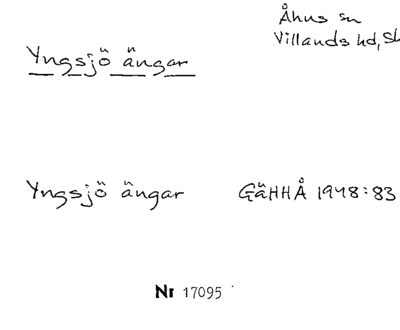 Åhus sn
Villands hd, Sk
Yngsjö ängar
Yngsjö ängar GäHHÅ 1948:83
Nr 17095